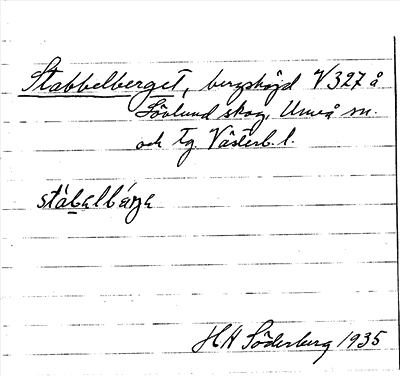 Stabbelberget, bergshöjd V 327 å
Sörlund skog, Umeå sn.
och tg. Västerb. l.
stàbalbárja
HH Söderberg 1935